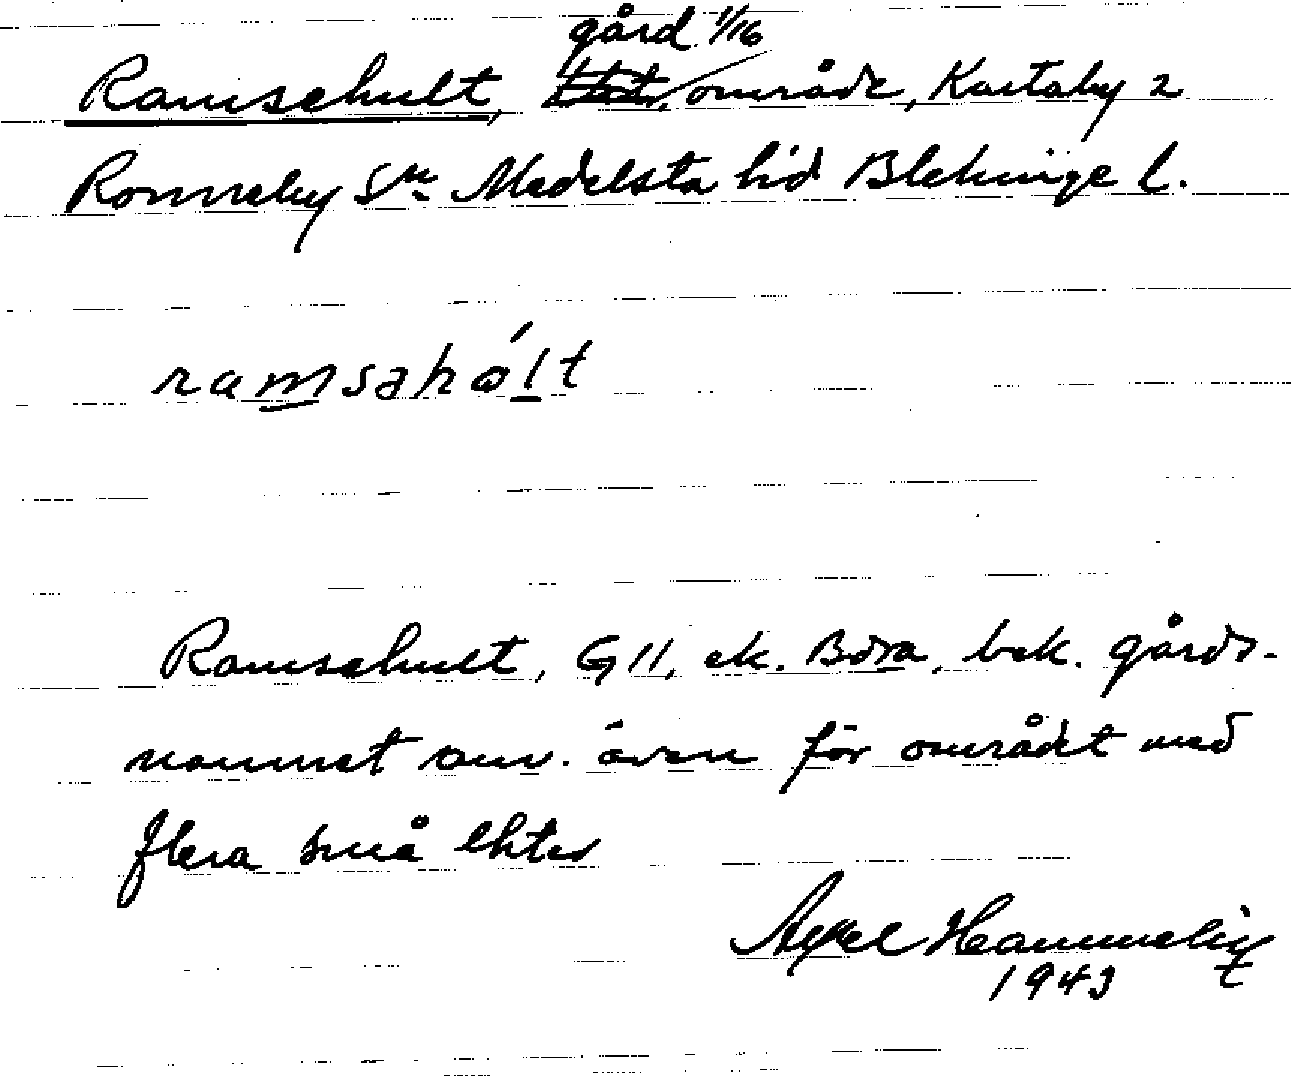 gård 1/16
Ramsehult, område, Kartaby 2
Ronneby Sn Medelsta hd Blekinge l.
ramsəhólt
Ramsehult, G 11, ek. Böra, bek. gårds-
namnet anv. även för området med
flera små lhter
Axel Hammelin
1943